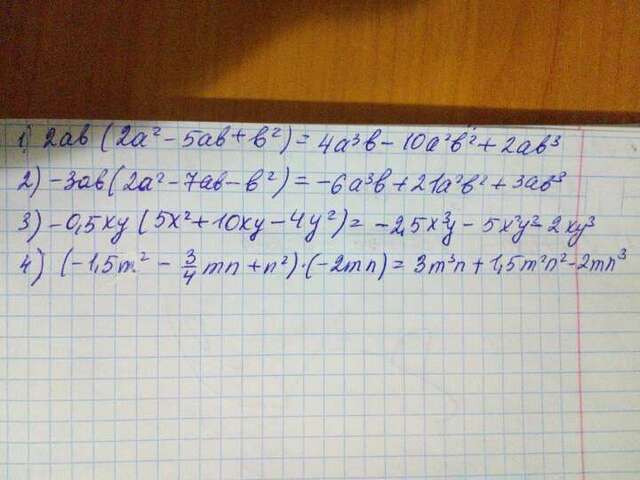 1) 2ab (2a² - 5ab + b²) = 4a³b - 10a²b² + 2ab³
2) -3ab (2a² - 7ab - b²) = -6a³b + 21a²b² + 3ab³
3) -0,5xy (5x² + 10xy - 4y²) = -2,5x³y - 5x²y² - 2xy³
4) (-1,5m² - 3/4 mn + n²) · (-2mn) = 3m³n + 1,5m²n² - 2mn³